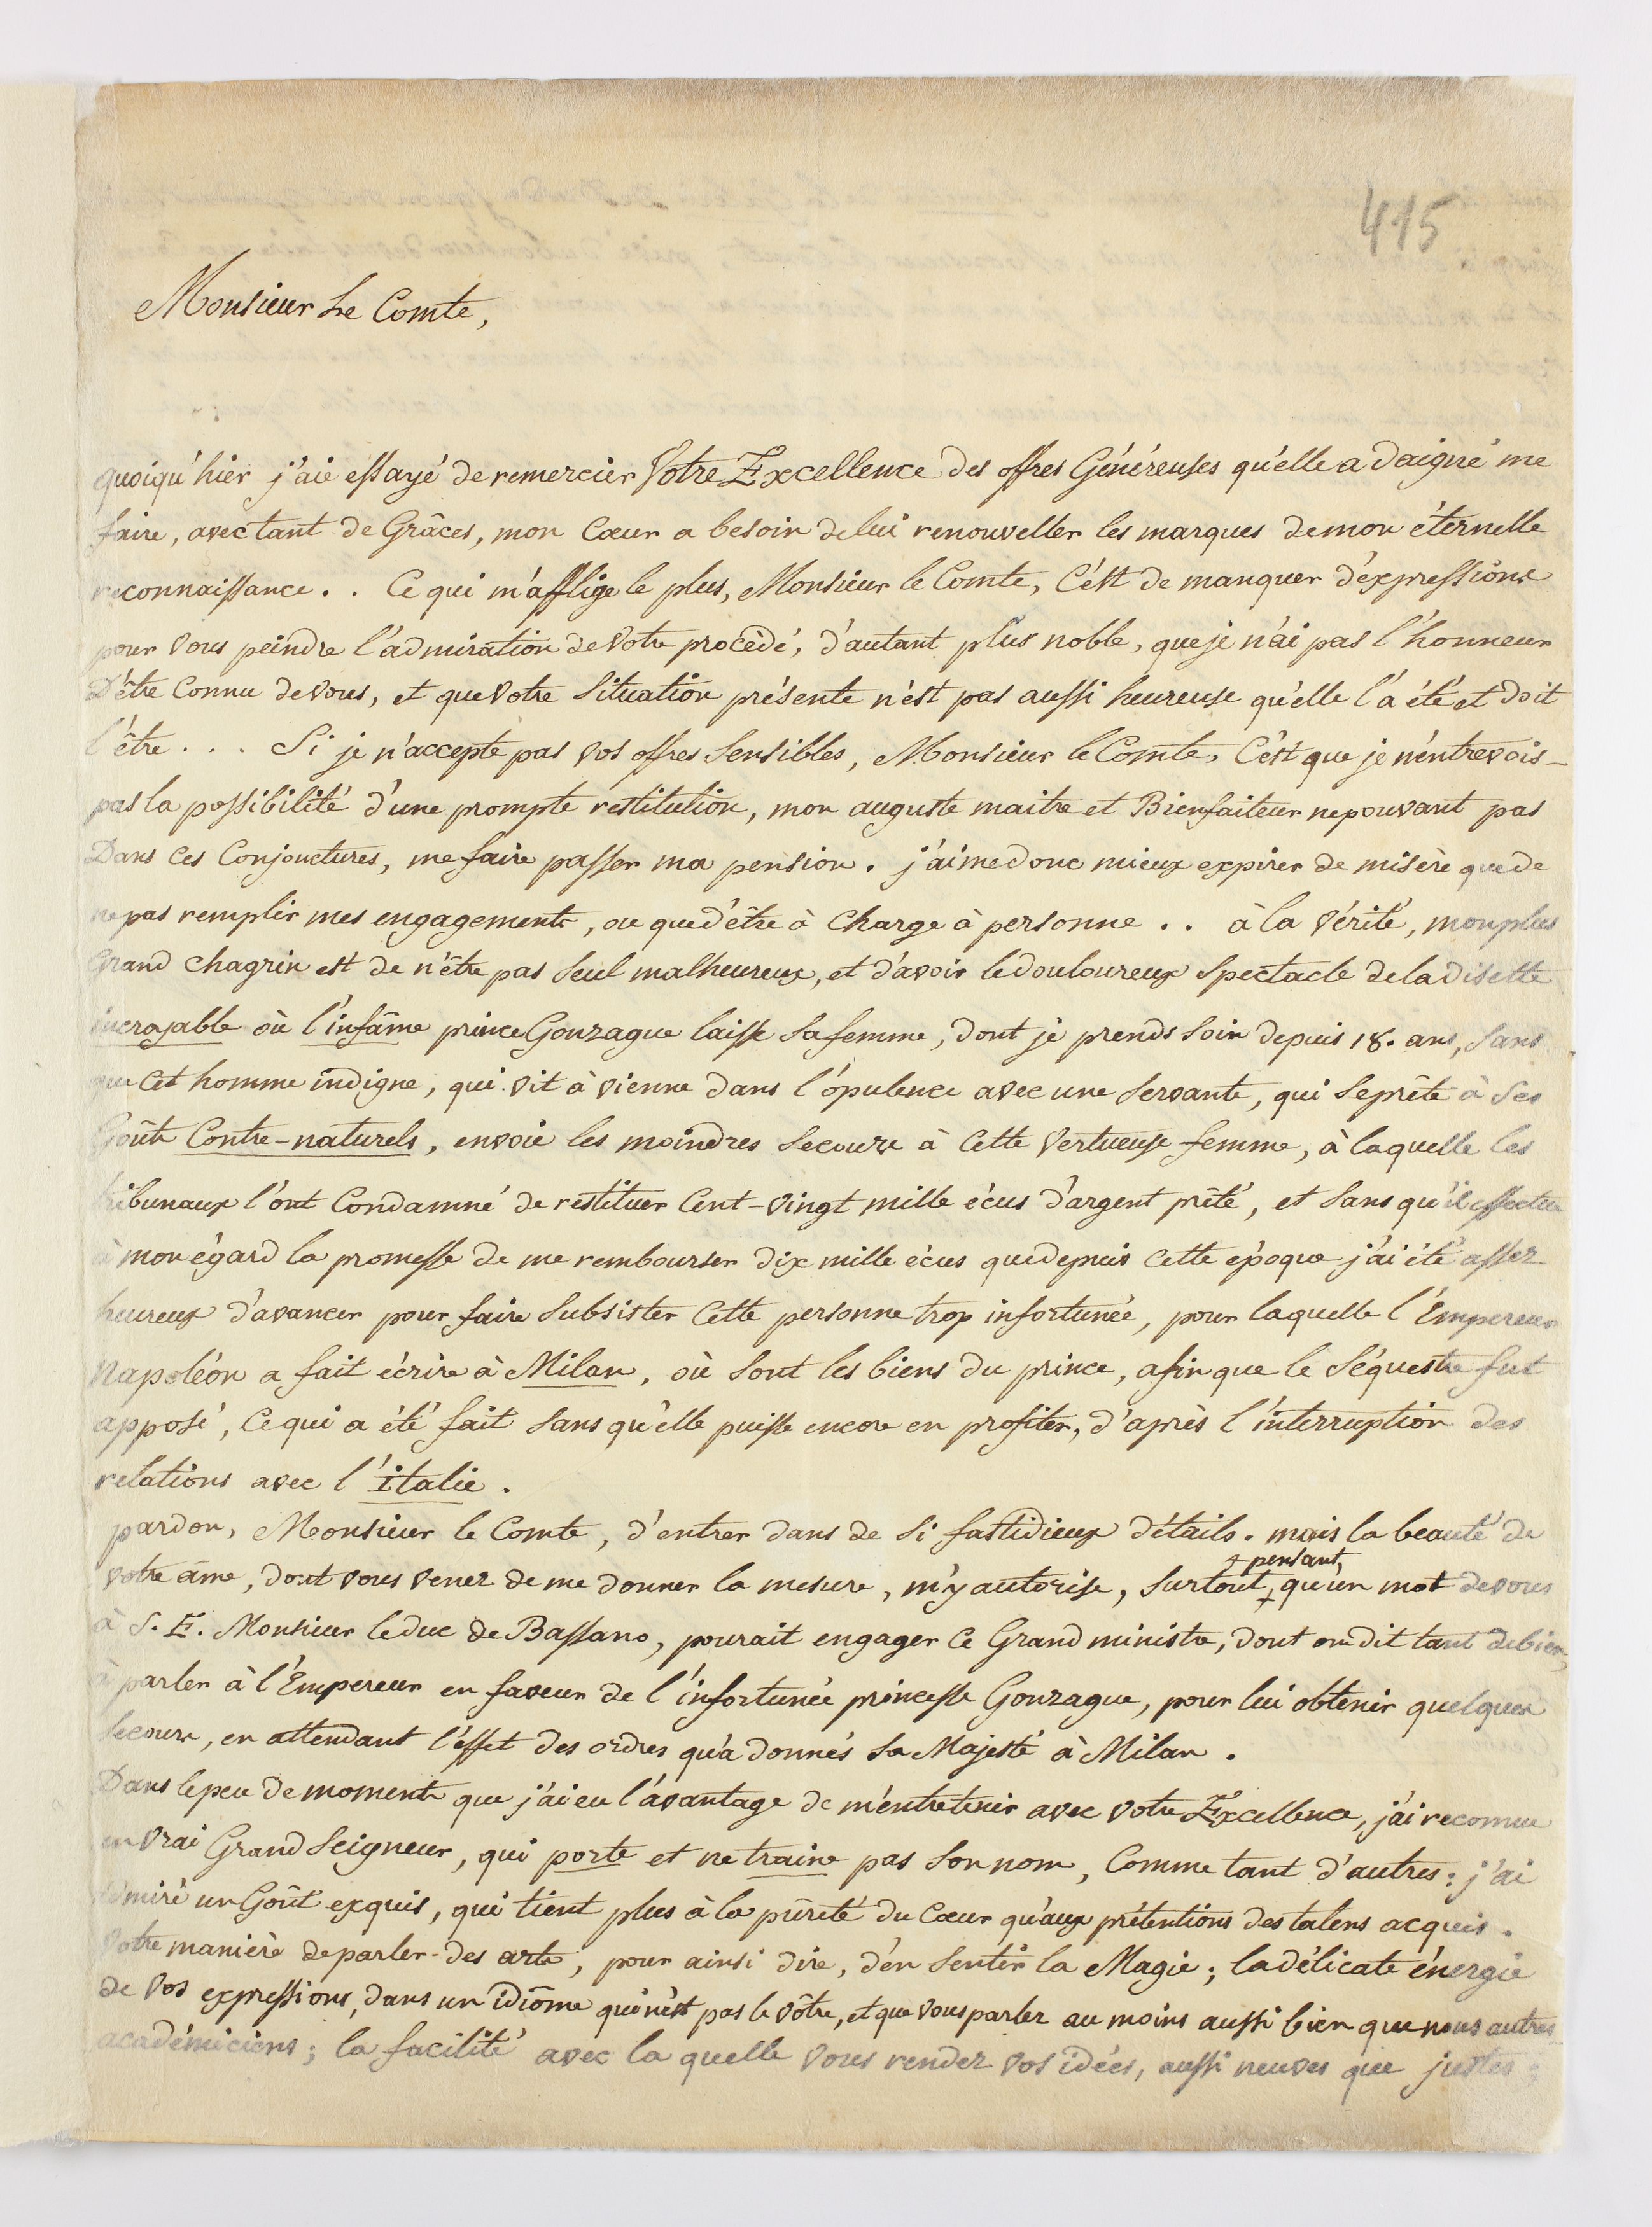 415
Monsieur Le Comte,
quoiqu'hier j'aie essayé de remercier Votre Excellence des offres Généreuses qu'elle a daigné me
faire, avec tant de Grâces, mon Cœur a besoin de lui renouveller les marques de mon éternelle
reconnaissance . . Ce qui m'afflige le plus, Monsieur le Comte, C'est de manquer d'expressions
pour Vous peindre l'admiration de Votre procédé, d'autant plus noble, que je n'ai pas l'honneur
D'être Connu de Vous, et que Votre Situation présente n'est pas aussi heureuse qu'elle l'a été et doit
l'être . . . Si je n'accepte pas Vos offres Sensibles, Monsieur le Comte, C'est que je n'entrevois-
pas la possibilité d'une prompte restitution, mon auguste maitre et Bienfaiteur ne pouvant pas
Dans Ces Conjonctures, me faire passer ma pension. j'aime donc mieux expirer de misère que de
ne pas remplir mes engagements, ou que d'être à Charge à personne . . à la Vérité, mon plus
Grand chagrin est de n'être pas Seul malheureux, et d'avoir le douloureux Spectacle de la disette
incroyable où l'infâme prince Gonzague laisse Sa femme, dont je prends Soin depuis 18. ans, Sans
que Cet homme indigne, qui Vit à Vienne dans l'opulence avec une Servante, qui Se prête à Ses
Goûts Contre-naturels, envoie les moindres Secours à Cette Vertueuse femme, à laquelle les
tribunaux l'ont Condamné de restituer Cent-Vingt mille écus d'argent prêté, et Sans qu'il effectue
à mon égard la promesse de me rembourser dix mille écus que depuis Cette époque j'ai été assez
heureux d'avancer pour faire Subsister Cette personne trop infortunée, pour laquelle l'Empereur
Napoléon a fait écrire à Milan, où Sont les biens du prince, afin que le Séquestre fut
apposé, Ce qui a été fait Sans qu'elle puisse encore en profiter, d'après l'interruption des
relations avec l'italie.
pardon, Monsieur le Comte, d'entrer dans de Si fastidieux détails. mais la beauté de
Votre âme, dont Vous Venez de me donner la mesure, m'y autorise, Surtout + pensant, qu'un mot de Vous
à S. E. Monsieur le duc de Bassano, pourait engager Ce Grand ministre, dont on dit tant de bien,
à parler à l'Empereur en faveur de l'infortunée princesse Gonzague, pour lui obtenir quelques
Secours, en attendant l'effet des ordres qu'a donnés Sa Majesté à Milan.
Dans le peu de moments que j'ai eu l'avantage de m'entretenir avec Votre Excellence, j'ai reconnu
un Vrai Grand Seigneur, qui porte et ne traine pas Son nom, Comme tant d'autres: j'ai
admiré un Goût exquis, qui tient plus à la pureté du Cœur qu'aux prétentions des talens acquis.
Votre manière de parler des arts, pour ainsi dire, d'en Sentir la Magie; la délicate énergie
de Vos expressions, dans un idiôme qui n'est pas le Vôtre, et que Vous parlez au moins aussi bien que nous autres
académiciens; la facilité avec la quelle Vous rendez Vos idées, aussi neuves que justes;